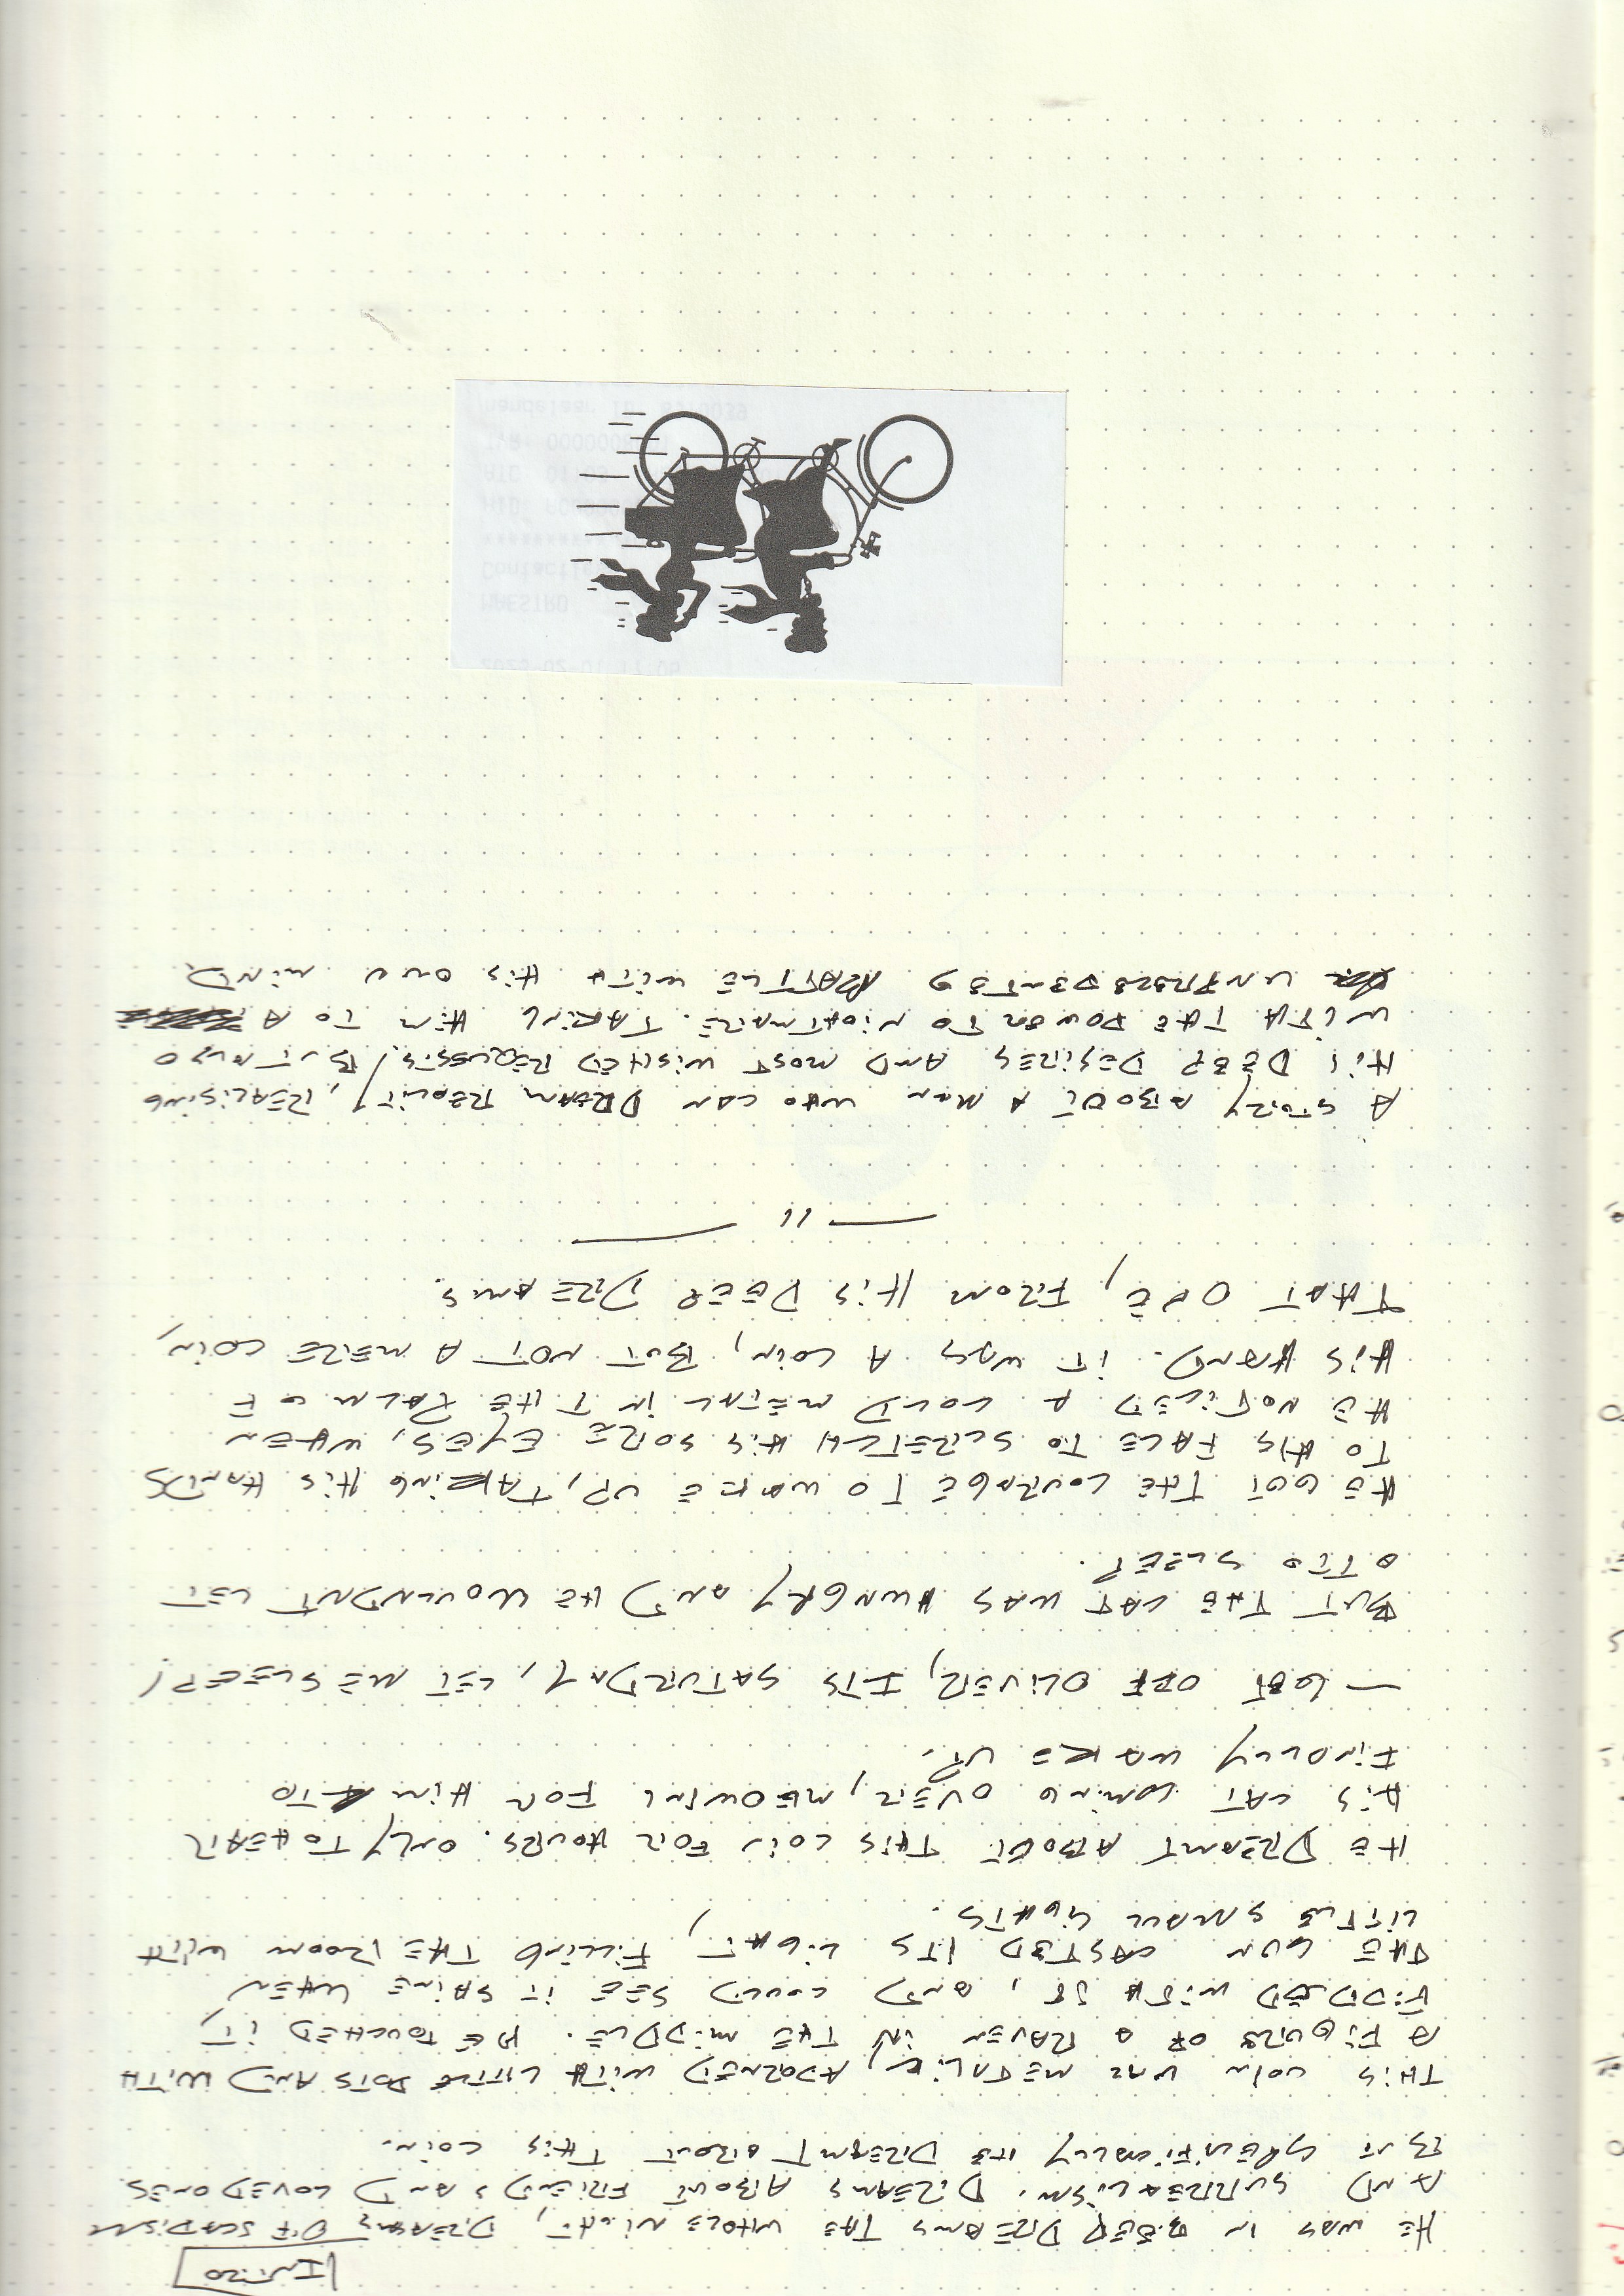 INIZO
HE WAS IN DEEP DREAMS THE WHOLE NIGHT, DREAMS OF SCADISM
AND SURREALISM. DREAMS ABOUT FRIENDS AND LOVED ONES
BUT SPECIFICALLY HE DREAMT ABOUT THIS COIN.
THIS COIN WAS METALIC, ADORNED WITH LITTLE DOTS AND WITH
A FIGURE OF A RAVEN IN THE MIDDLE. HE TOUCHED IT,
FIDDLED WITH IT, AND COULD SEE IT SHINE WHEN
THE SUN CASTED ITS LIGHT, FILLING THE ROOM WITH
LITTLE SMALL LIGHTS.
HE DREAMT ABOUT THIS COIN FOR HOURS. ONLY TO HEAR
HIS CAT COMING OVER, MEOWING FOR HIM TO
FINALLY WAKE UP.
— GET OFF OLIVER, ITS SATURDAY, LET ME SLEEP!
BUT THE CAT WAS HUNGRY AND HE WOULDNT LET
OTTO SLEEP.
HE GOT THE COURAGE TO WAKE UP, TAKING HIS HANDS
TO HIS FACE TO SCRETCH HIS SORE EYES, WHEN
HE NOTICED A COLD METAL IN THE PALM OF
HIS HAND. IT WAS A COIN, BUT NOT A MERE COIN,
THAT ONE, FROM HIS DEEP DREAMS.
— // —
A STORY ABOUT A MAN WHO CAN DREAM REALITY, REALISING
HIS DEEP DESIRES AND MOST WISHED REQUESTS, BUT ALSO
WITH THE POWER TO NIGHTMARE. TAKING HIM TO A
UNPRECEDENTED BATTLE WITH HIS OWN MIND